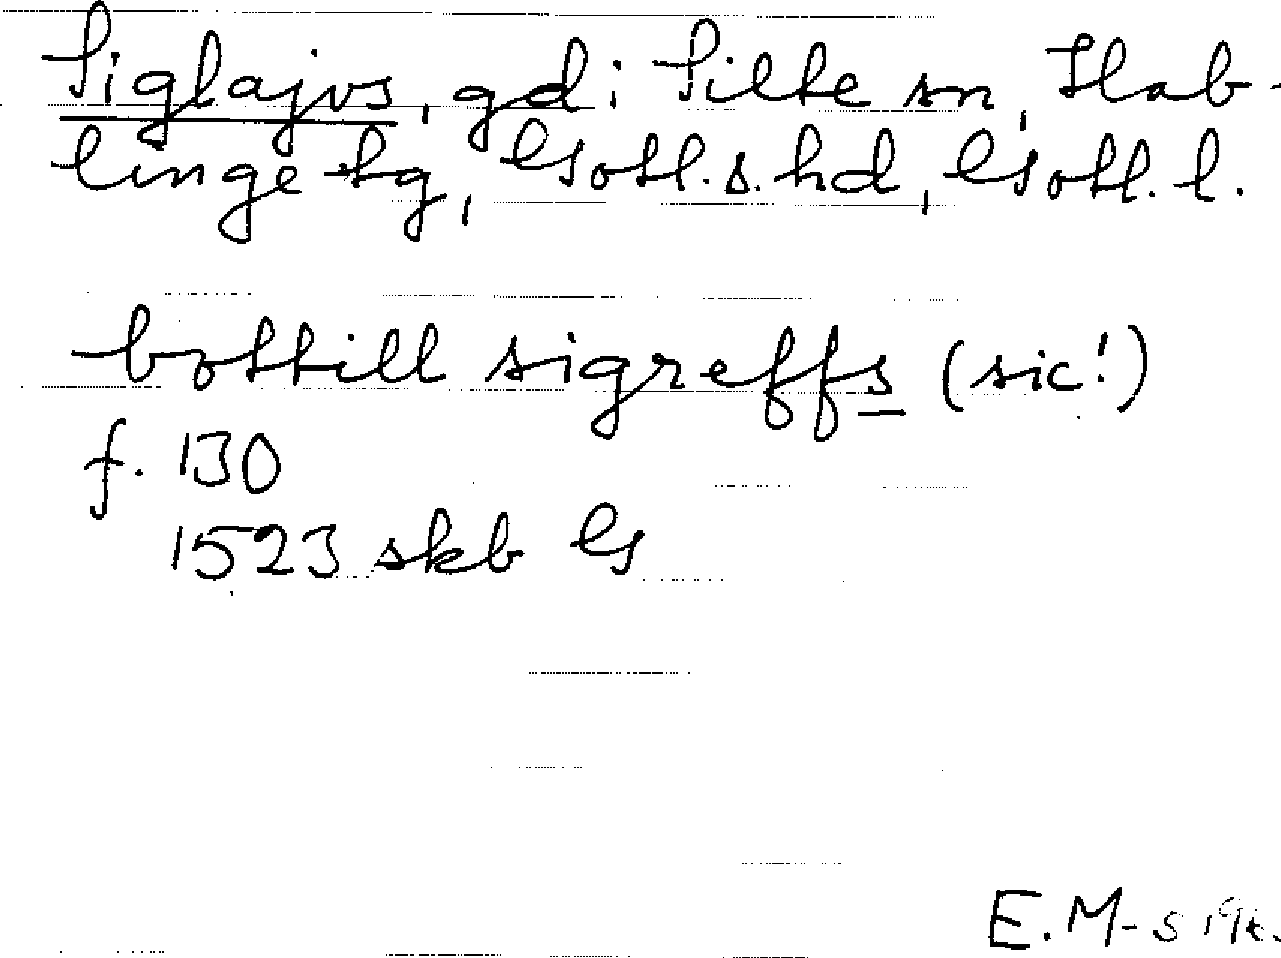 Siglajvs, gd i Silte sn, Hab-
linge tg, Gotl. s. hd, Gotl. l.
bottill sigreffs (sic!)
f. 130
1523 skb G
E. M-s